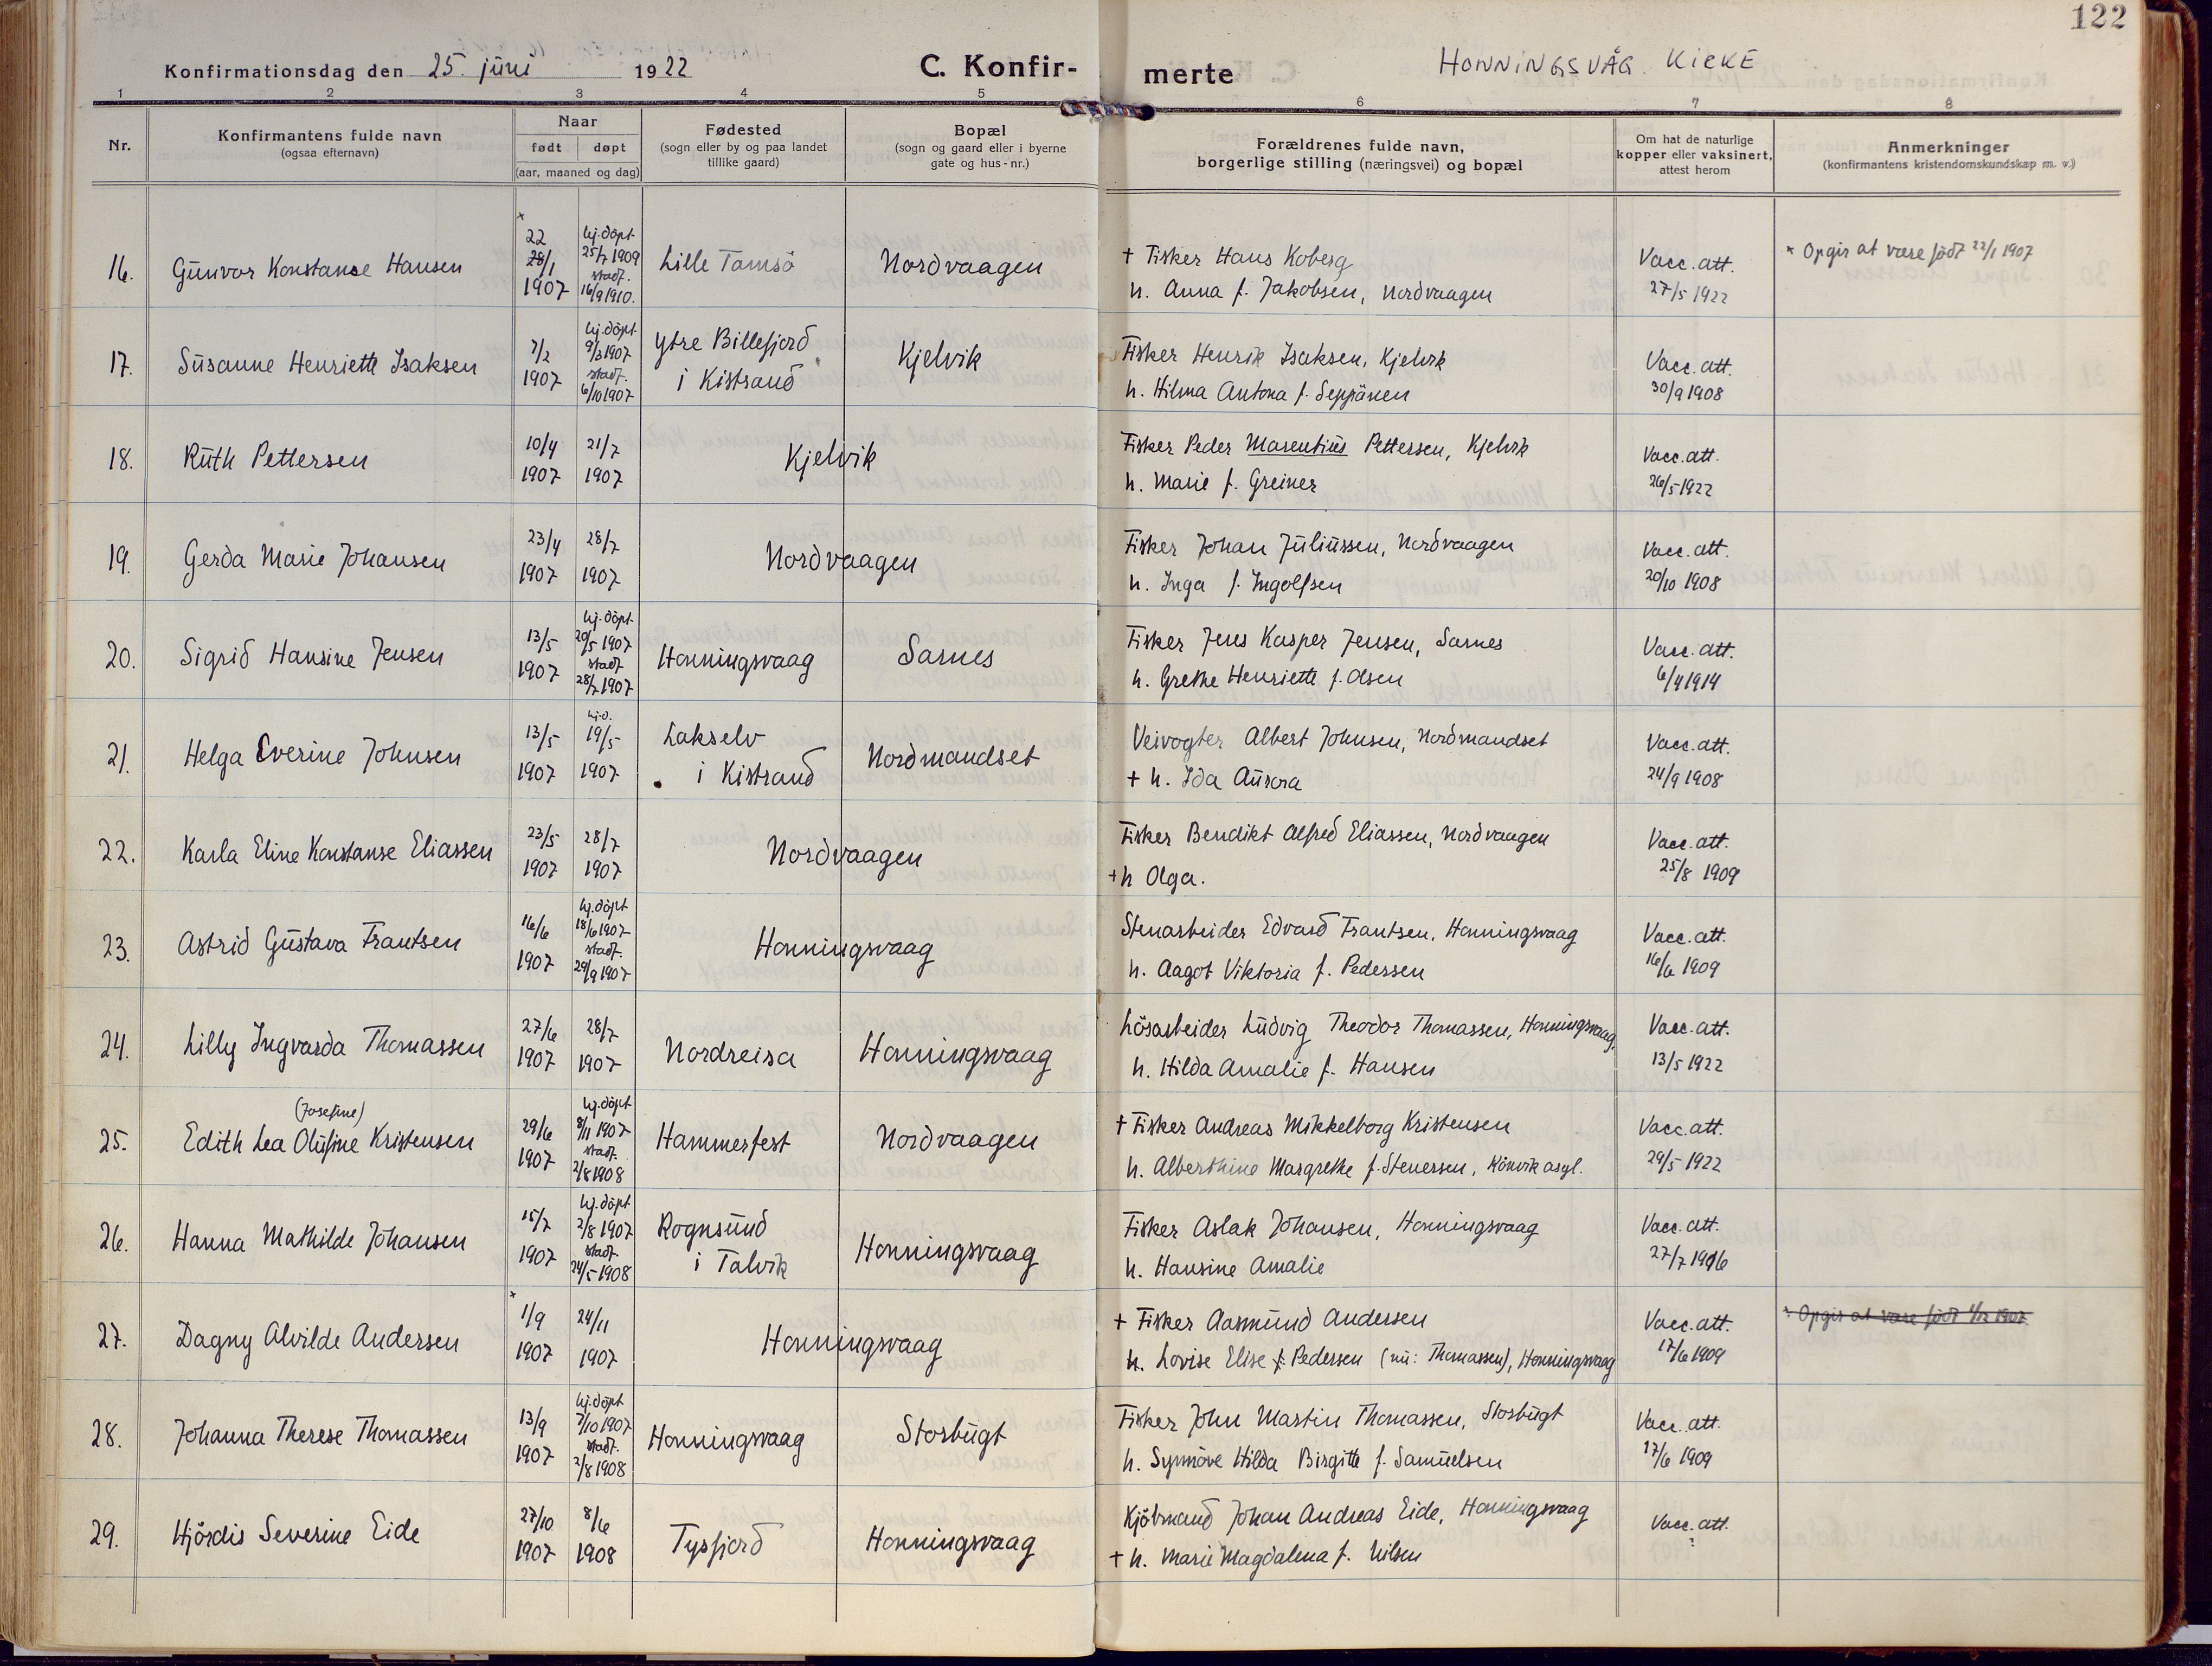 122
Konfirmationsdag den 25. juni 1922
C. Konfir-
merte
HONNINGSVÅG KIRKE
1 2 3 4 5 6 7 8
Nr.
Konfirmantens fulde navn
(ogsaa efternavn)
Naar
født døpt
(aar, maaned og dag)
Fødested
(sogn eller by og paa landet
tillike gaard)
Bopæl
(sogn og gaard eller i byerne
gate og hus-nr.)
Forældrenes fulde navn,
borgerlige stilling (næringsvei) og bopæl
Om hat de naturlige
kopper eller vaksinert,
attest herom
Anmerkninger
(konfirmantens kristendomskundskap m. v.)
16. Gunvor Konstanse Hansen
×
22
28/1
1907
hj. döpt
25/7 1909
stadf.
16/9 1910.
Lille Tamsö
Nordvaagen
+ Fisker Hans Koberg
h. Anna f. Jakobsen, Nordvaagen
Vacc. att.
27/5 1922
× Opgir at være födt 22/1 1907
17. Susanne Henriette Isaksen
7/2
1907
hj. döpt
9/3 1907
stadf.
6/10 1907
Ytre Billefjord
i Kistrand
Kjelvik
Fisker Henrik Isaksen, Kjelvik
h. Hilma Antona f. Seppänen
Vacc. att.
30/9 1908
18. Ruth Pettersen
10/4
1907
21/7
1907
Kjelvik
Fisker Peder Marentius Pettersen, Kjelvik
h. Marie f. Greiner
Vacc. att.
26/5 1922
19. Gerda Marie Johansen
23/4
1907
28/7
1907
Nordvaagen
Fisker Johan Juliussen, Nordvaagen
h. Inga f. Ingolfsen
Vacc. att.
20/10 1908
20. Sigrid Hansine Jensen
13/5
1907
hj. döpt
20/5 1907
stadf.
28/7 1907
Honningsvaag
Sarnes
Fisker Jens Kasper Jensen, Sarnes
h. Grethe Henriette f. Olsen
Vacc. att.
6/4 1914
21. Helga Everine Johnsen
13/5
1907
hj. d.
19/5
1907
Lakselv
i Kistrand
Nordmandset
Veivogter Albert Johnsen, Nordmandset
+ h. Ida Aurora
Vacc. att.
24/9 1908
22. Karla Eline Konstanse Eliassen
23/5
1907
28/7
1907
Nordvaagen
Fisker Bendikt Alfred Eliassen, Nordvaagen
+ h Olga.
Vacc. att.
25/8 1909
23. Astrid Gustava Frantsen
16/6
1907
hj. döpt
18/6 1907
stadf.
29/9 1907
Honningsvaag
Stenarbeider Edvard Frantsen, Honningsvaag
h. Aagot Viktoria f. Pedersen
Vacc. att.
16/6 1909
24. Lilly Ingvarda Thomassen
27/6
1907
28/7
1907
Nordreisa
Honningsvaag
Lösarbeider Ludvig Theodor Thomassen, Honningsvaag.
h. Hilda Amalie f. Hansen
Vacc. att.
13/5 1922
(Josefine)
25. Edith Lea Olufine Kristensen
29/6
1907
hj. döpt
8/11 1907
stadf.
2/8 1908
Hammerfest
Nordvaagen
+ Fisker Andreas Mikkelborg Kristensen
h. Alberthine Margrethe f. Stenersen, Rönvik asyl.
Vacc. att.
29/5 1922
26. Hanna Mathilde Johansen
15/7
1907
hj. döpt
2/8 1907
stadf.
24/5 1908
Rognsund
i Talvik
Honningsvaag
Fisker Aslak Johansen, Honningsvaag
h. Hansine Amalie
Vacc. att.
27/7 1916
27. Dagny Alvilde Andersen
×
1/9
1907
24/11
1907
Honningsvaag
+ Fisker Aasmund Andersen
h. Lovise Elise f. Pedersen (nu: Thomassen), Honningsvaag
Vacc. att.
17/6 1909
× Opgir at være födt 1/12 1907
28. Johanna Therese Thomassen
13/9
1907
hj. döpt
7/10 1907
stadf.
2/8 1908
Honningsvaag
Storbugt
Fisker John Martin Thomassen, Storbugt
h. Synnöve Hilda Birgitte f. Samuelsen
Vacc. att.
17/6 1909
29. Hjördis Severine Eide
27/10
1907
8/6
1908
Tysfjord
Honningsvaag
Kjöbmand Johan Andreas Eide, Honningsvaag
+ h. Marie Magdalena f. Nilsen
Vacc. att.
?